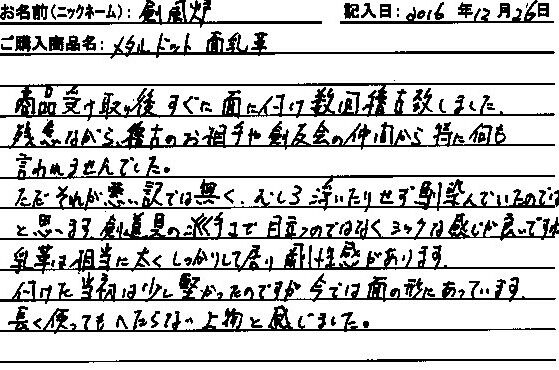 お名前(ニックネーム): 剣風炉 記入日: 2016 年 12 月 26日
ご購入商品名: メタルドット 面乳革
商品受け取り後すぐに面に付け数回稽古致しました。
残念ながら、稽古のお相手や剣友会の仲間から特に何も
言われませんでした。
ただそれが悪い訳では無く、むしろ浮いたりせず馴染んでいたのでは
と思います。剣道具の派手さで目立つのではなくシックな感じが良いですね
乳革は相当に太くしっかりして居り剛性感があります。
付けた当初は少し堅かったのですが今では面の形にあっています。
長く使ってもへたらない上物と感じました。